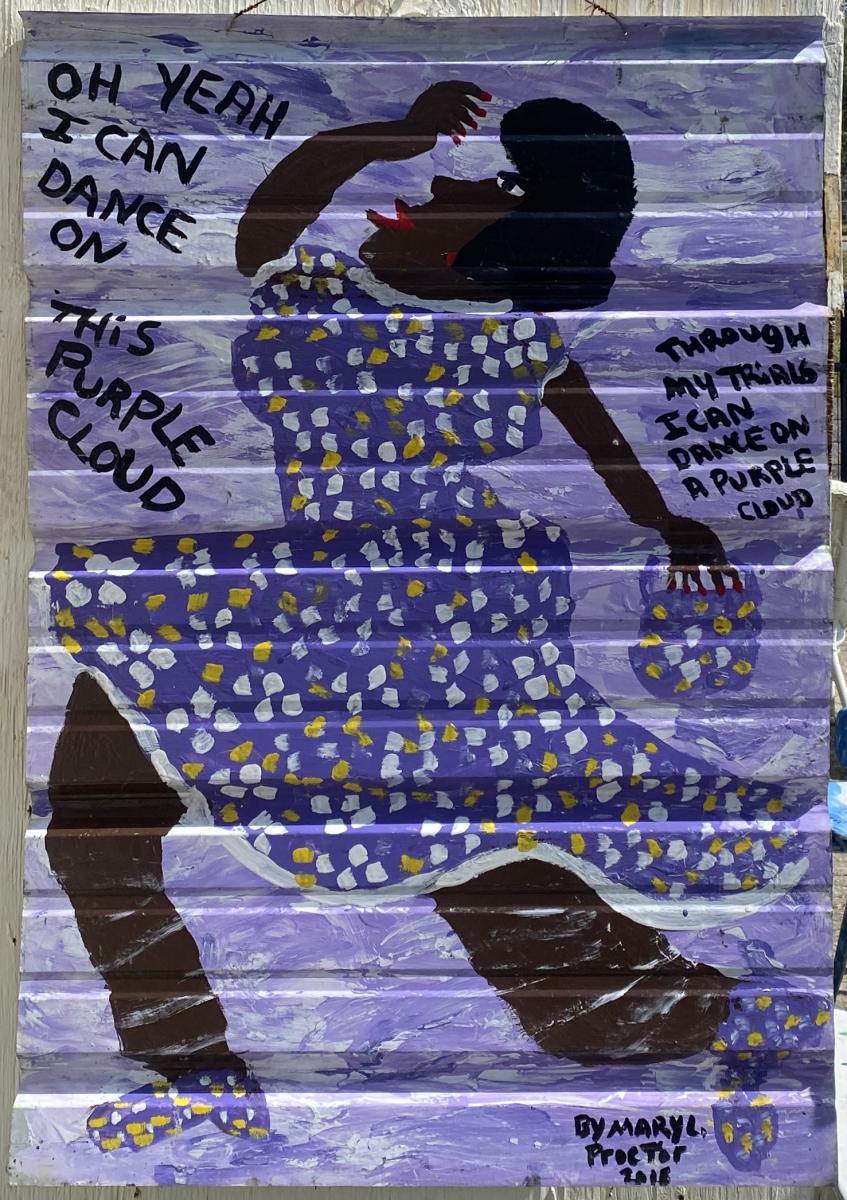 OH YEAH
I CAN
DANCE
ON
THiS
PURPLE
CLOUD
THROUGH
MY TRIALS
I CAN
DANCE ON
A PURPLE
CLOUD
BY MARY L.
PROCTOR
2018